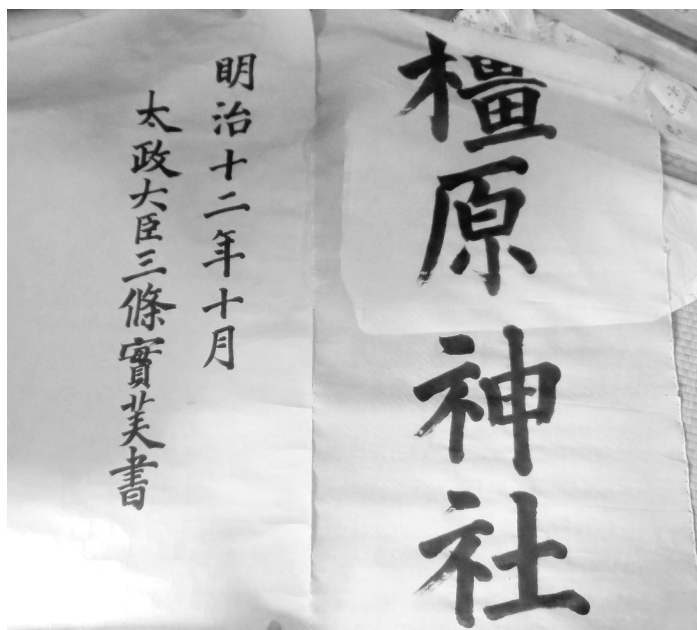 橿原神社
明治十二年十月
太政大臣三條實美書